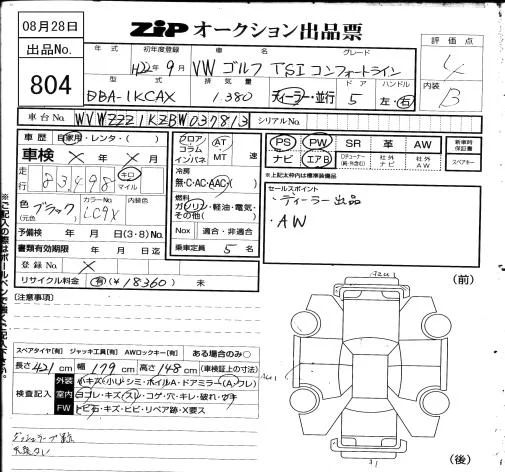 08月28日
ZIP オークション出品票
出品No.
804
年式
初年度登録
車名
グレード
H22年9月 VW ゴルフ TSI コンフォートライン
評価点
4
内装
B
型式
排気量
ドア
ハンドル
DBA-1KCAX 1.380 ディーラー・並行 5 左・右
車台No. WVWZZZ1KZBW037813 シリアルNo.
車歴 自家用・レンタ・( )
車検 × 年 × 月
走行 83498 キロ マイル
色(元色) ブラック カラーNo. LC9X 内装色
予備検 年 月 日(3・8)No.
書類有効期限 年 月 日迄
登録No. ×
リサイクル料金 有(¥18360) 未
フロア コラム インパネ
AT MT 速
冷房
無・C・AC・AAC( )
燃料
ガソリン・軽油・電気・その他( )
Nox 適合・非適合
乗車定員 5 名
PS PW SR 革 AW
ナビ エアB Dチューナー(無線・有線) 社外ナビ 社外AW
新車時保証書
スペアキー
※上記太枠内は標準装備品
セールスポイント
・ディーラー出品
・AW
※ご記入の際はボールペンで強くご記入下さい。
[注意事項]
(前)
スペアタイヤ[有] ジャッキ工具[有] AWロックキー[有] ある場合のみ○
長さ 421 cm 幅 179 cm 高さ 148 cm (車検証上の寸法)
検査記入
外装 小キズ・小U・シミ・ホイルA・ドアミラー(A・ワレ)
室内 ヨゴレ・キズ・スレ・コゲ・穴・キレ・破れ・ウキ
FW トビ石・キズ・ヒビ・リペア跡・X要ス
(後)